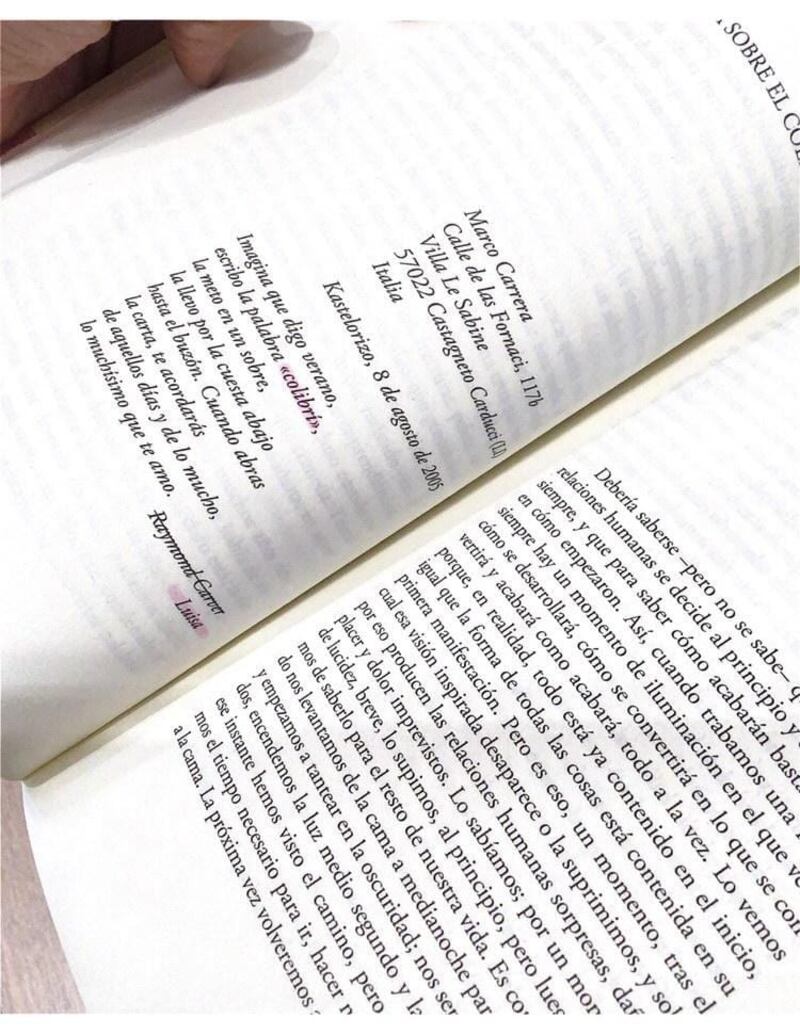 SOBRE EL
Marco Carrera
Calle de las Fornaci, 117b
Villa Le Sabine
57022 Castagneto Carducci (LI)
Italia
Kastelorizo, 8 de agosto de 2005
Imagina que digo verano,
escribo la palabra «colibrí»,
la meto en un sobre,
la llevo por la cuesta abajo
hasta el buzón. Cuando abras
la carta, te acordarás
de aquellos días y de lo mucho,
lo muchísimo que te amo.
Raymond Carver
Luisa
Debería saberse –pero no se sabe–
relaciones humanas se decide al principio y
siempre, y que para saber cómo acabarán
en cómo empezaron. Así, cuando trabamos una
siempre hay un momento de iluminación en el que
cómo se desarrollará, cómo se convertirá en lo que se con
vertirá y acabará como acabará, todo a la vez. Lo vemos
porque, en realidad, todo está ya contenido en el inicio,
igual que la forma de todas las cosas está contenida en su
primera manifestación. Pero es eso, un momento, tras el
cual esa visión inspirada desaparece o la suprimimos, y
por eso producen las relaciones humanas sorpresas,
placer y dolor imprevistos. Lo sabíamos; por un
de lucidez, breve, lo supimos, al principio, pero
mos de saberlo para el resto de nuestra vida. Es
do nos levantamos de la cama a medianoche
y empezamos a tantear en la oscuridad; nos
dos, encendemos la luz medio segundo y
ese instante hemos visto el camino, pero
mos el tiempo necesario para ir, hacer
a la cama. La próxima vez volveremos